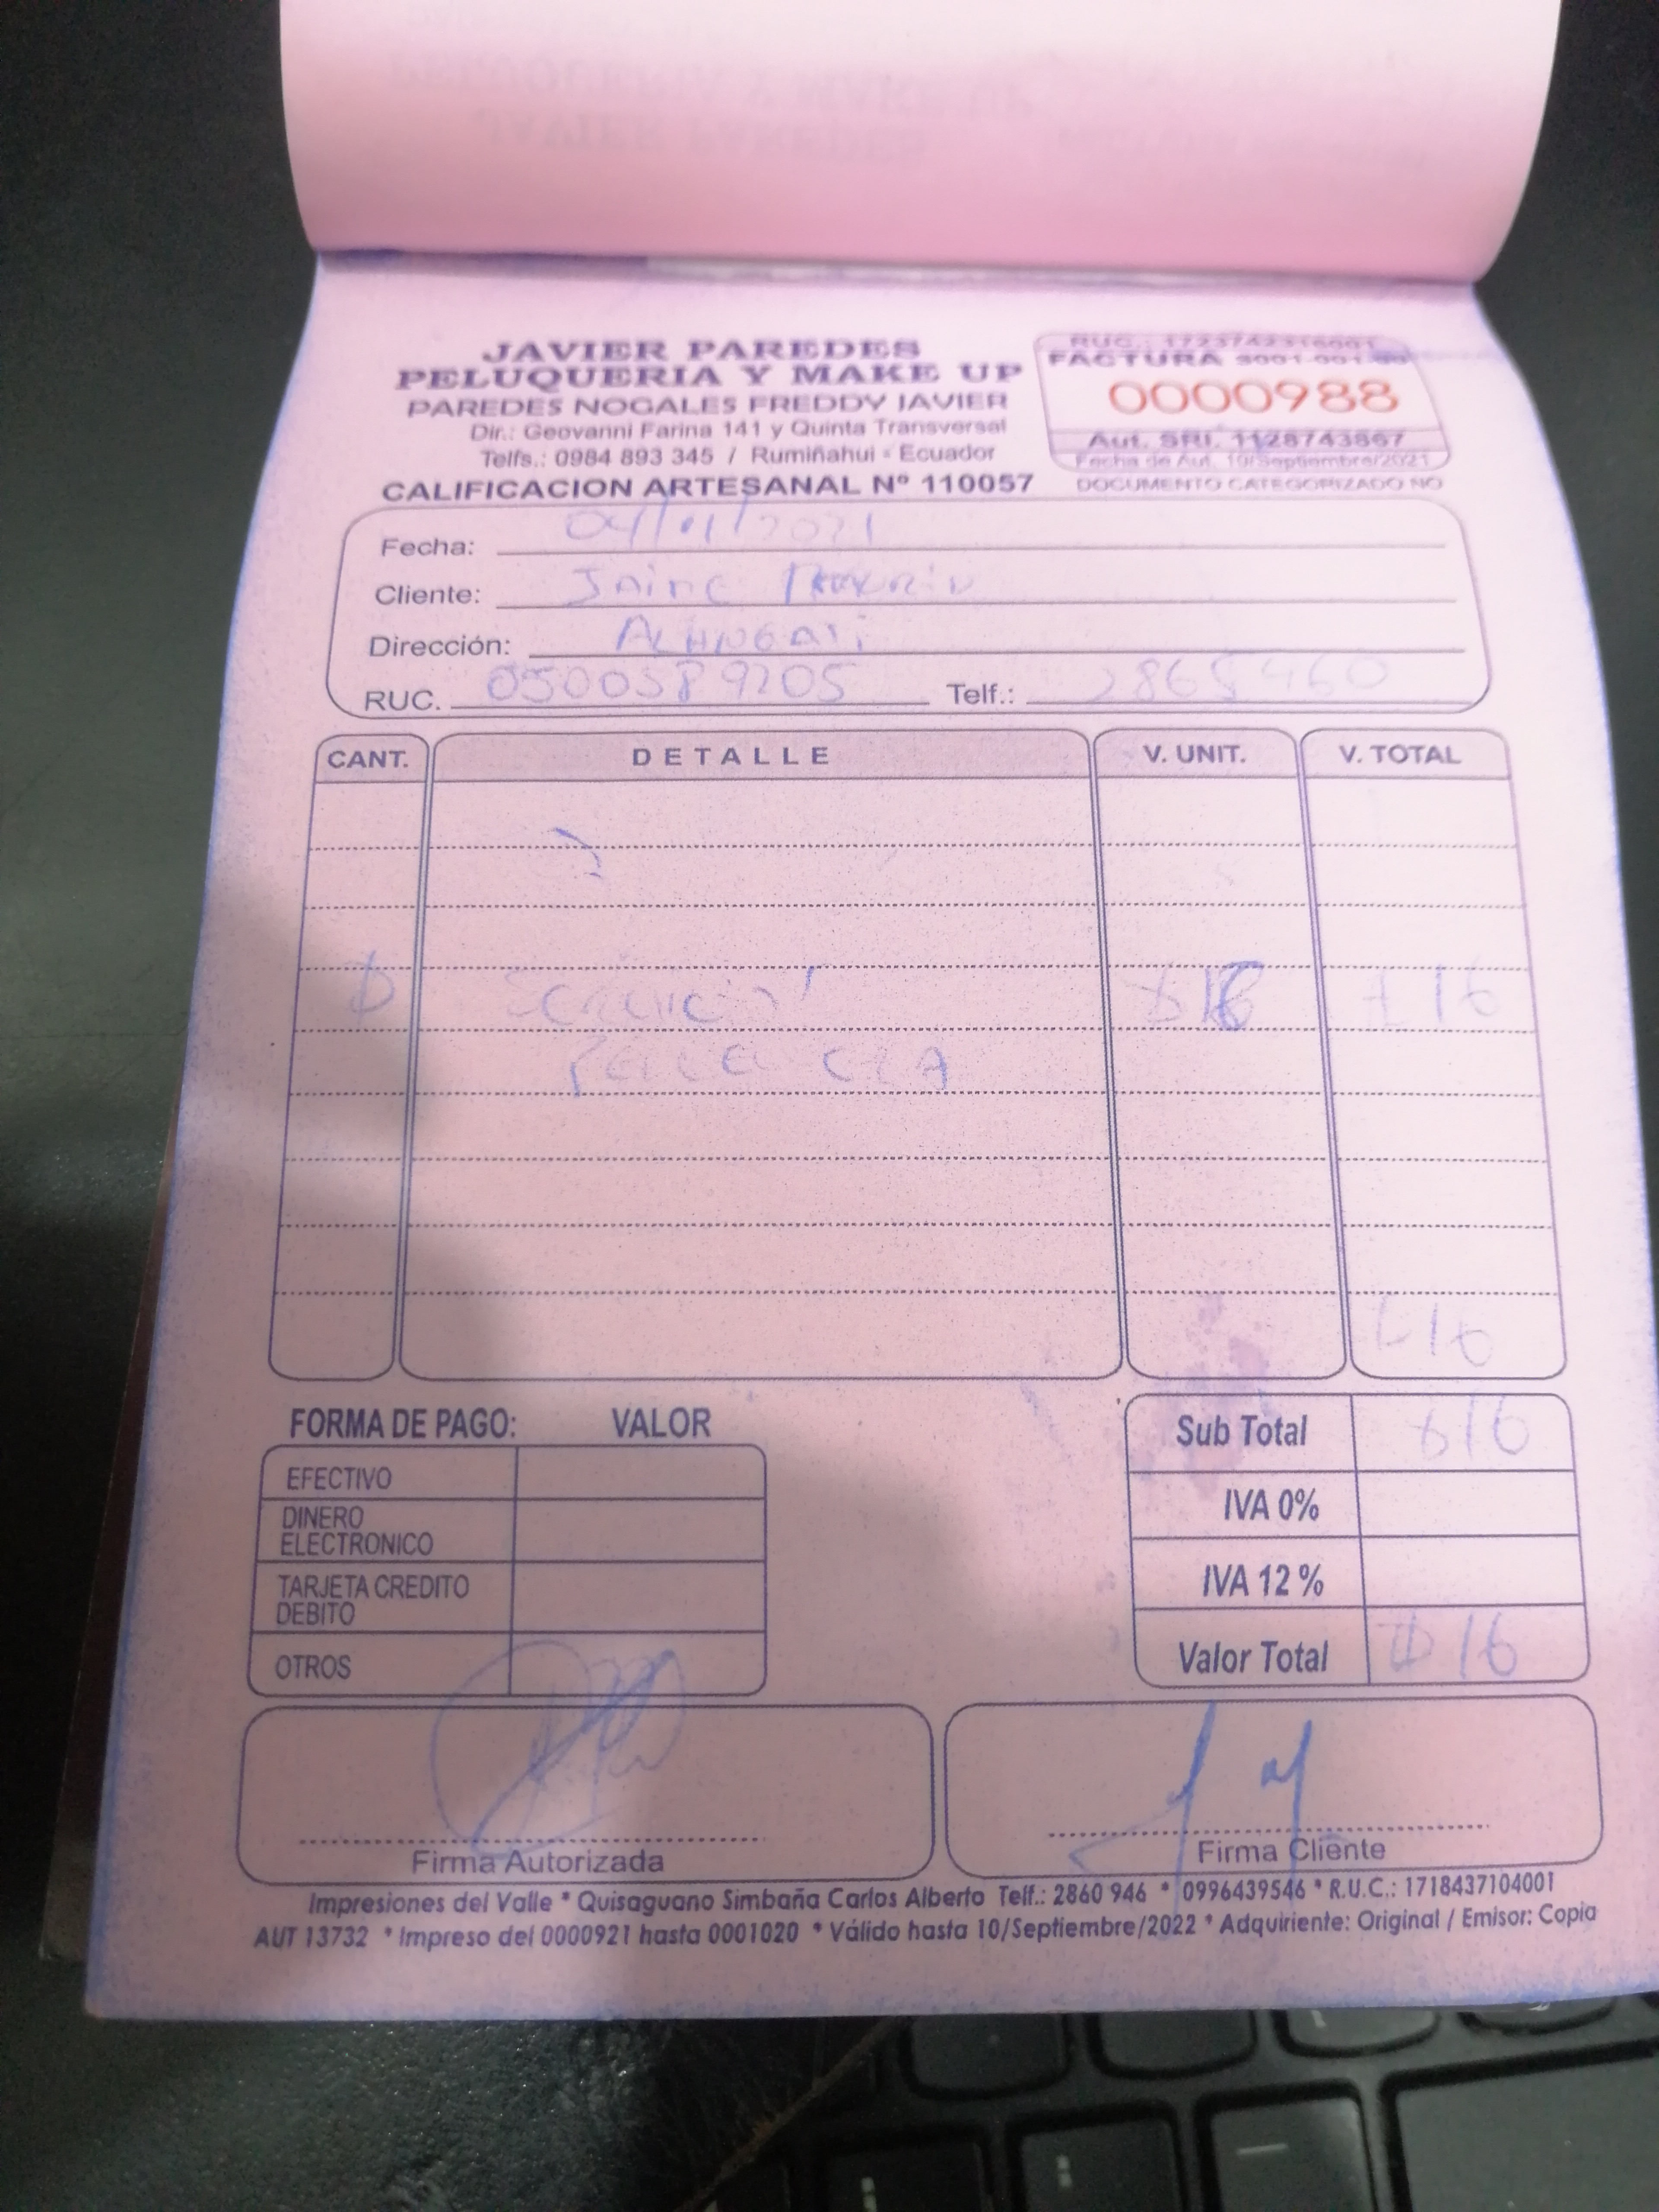 JAVIER PAREDES
PELUQUERIA Y MAKE UP
PAREDES NOGALES FREDDY JAVIER
Dir.: Geovanni Farina 141 y Quinta Transversal
Telfs.: 0984 893 345 / Rumiñahui - Ecuador
CALIFICACION ARTESANAL Nº 110057
RUC.:
FACTURA
0000988
Aut. SRI. 1128743867
Fecha de Aut. 10/Septiembre/2021
DOCUMENTO CATEGORIZADO NO
Fecha:
Cliente: Jaime
Dirección: ALANGASI
RUC. 0500589205 Telf.:
CANT. DETALLE V. UNIT. V. TOTAL
$16 16
16
FORMA DE PAGO: VALOR
EFECTIVO
DINERO ELECTRONICO
TARJETA CREDITO DEBITO
OTROS
Sub Total $16
IVA 0%
IVA 12 %
Valor Total $16
Firma Autorizada
Firma Cliente
Impresiones del Valle * Quisaguano Simbaña Carlos Alberto Telf.: 2860 946 * 0996439546 * R.U.C.: 1718437104001
AUT 13732 * Impreso del 0000921 hasta 0001020 * Válido hasta 10/Septiembre/2022 * Adquiriente: Original / Emisor: Copia